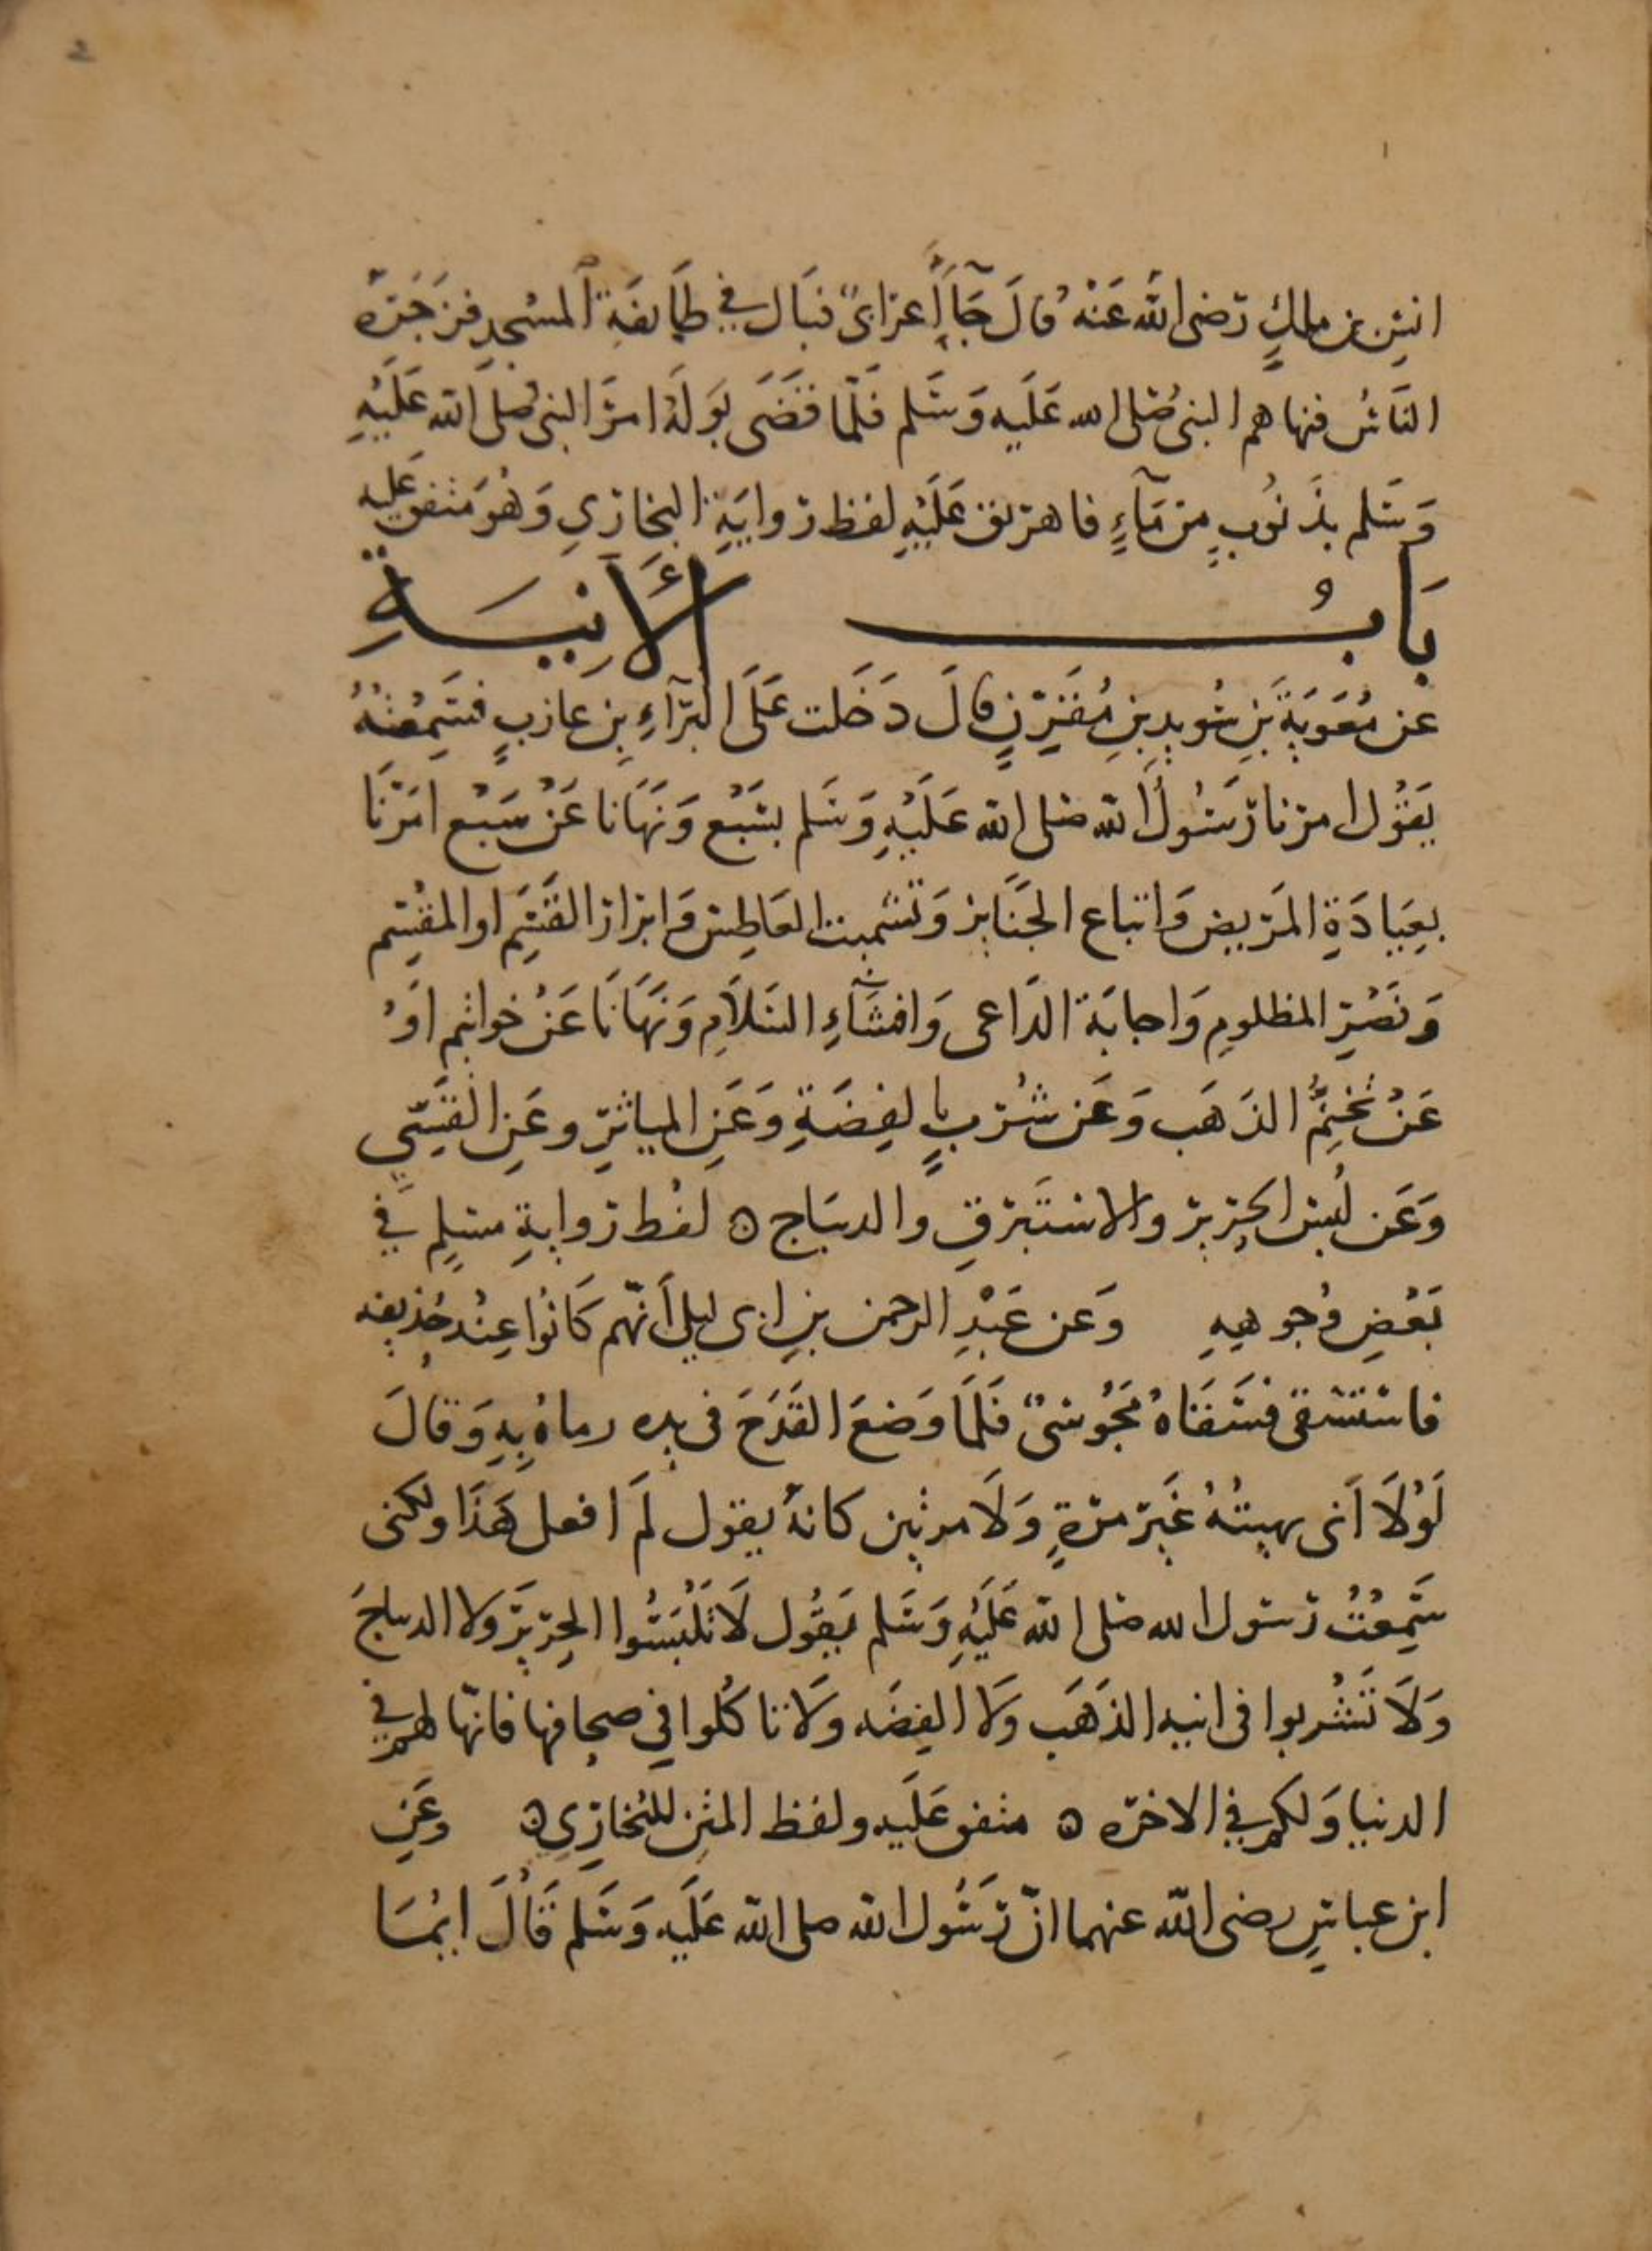 انسِ بن مالكٍ رَضى اللهُ عَنْهُ قالَ جَآءَ أَعرابىٌّ فبَالَ في طَآئفَةِ المسْجدِ فزَجَرَهُ
النَّاسُ فنهاهم النبىُّ صَلى الله عَلَيه وَسَلم فَلَمَّا قضَى بَولَهُ امَرَ النبىُّ صلى الله عَلَيْهِ
وَسَلم بذَنُوبٍ مِن مَآءٍ فاهريق عَلَيْهِ لفظ روايَةِ البخارِي وَهُوَ متفق عَليه
بَابُ الأَنِيَةِ
عَن مُعَوِيَةَ بَنِ سُويدِ بنِ مُقَرِّنٍ قالَ دَخَلت عَلَى البَرَآءِ بنِ عازبٍ فسَمِعْتُهُ
يَقُولُ امرنا رَسُولُ الله صَلى الله عَلَيْهِ وَسَلم بسَبْعٍ وَنَهَانا عَنْ سَبْعٍ امَرَنَا
بعِيَادَةِ المَريض وَاتباع الجَنَايز وَتشميت العَاطِس وَابرار القَسَمِ او المقْسِم
وَنَصْرِ المظلومِ وَاجابَة الدَاعى وَافشَآءِ السَلَامِ وَنَهَانَا عَنْ خواتيم اوْ
عَنْ تَخَتُّمِ الذَهَب وَعَن شُرْبٍ بالفِضَةِ وَعَنِ المياثرِ وعَنِ القَسِّيِّ
وَعَن لُبْسِ الحَرِير والاسْتَبْرَقِ والديبَاج ۞ لفْظ روايةِ مسْلمٍ في
بَعْضِ وُجوههِ وَعن عَبْدِ الرحمن بنِ ابى ليلى أنّهم كَانُوا عِنْد حُذيفه
فاسْتسْقى فسَقَاهُ مَجُوسىٌّ فَلَمَّا وَضعَ القَدَحَ فى يدِه رماهُ بِهِ وَقالَ
لَوْلَا أنى نهيتُهُ غَيرَ مَرّةٍ وَلَا مرتين كانهُ يقول لَم افعل هَذَا ولكنى
سَمِعْتُ رَسُول الله صَلى الله عَلَيْهِ وَسَلم يَقُول لَا تَلْبَسُوا الحِرير وَلا الديباجَ
وَلَا تَشْربوا فى انيه الذهَب وَلا الفِضَه ولا تاكُلوا فِي صحافها فانّها لهم في
الدنيا وَلكم في الاخرَه ۞ متفق عَلَيه ولفظ المتن للبُخارِي ۞ وَعَنِ
ابن عباسٍ رضى الله عنهما انَّ رَسُول الله صلى الله عَلَيه وَسَلم قَالَ ايُّمَا